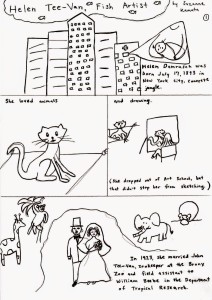 Helen Tee-Van, Fish Artist
by Suzanne
1
Helen Damrosch was
born July 17, 1893 in
New York City, concrete
jungle.
She loved animals
and drawing.
(She dropped out of Art School, but
that didn't stop her from sketching.)
In 1923, she married John
Tee-Van, zookeeper at the Bronx
Zoo and field assistant to
William Beebe in the Department
of Tropical Research.